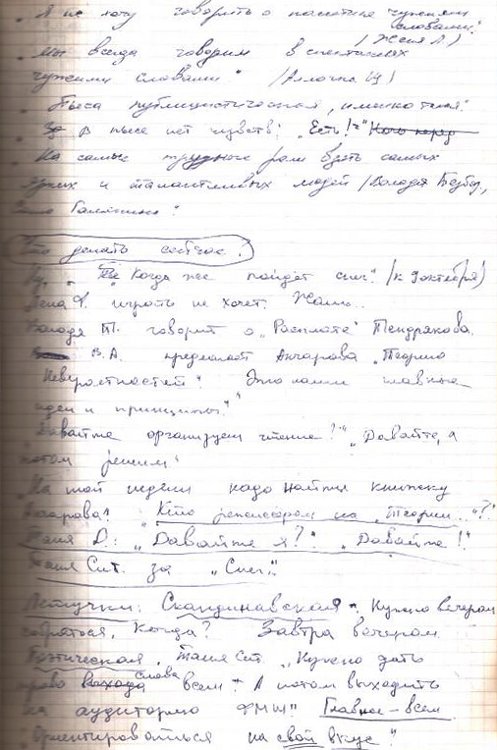 „Я не хочу говорить о политике чужими
словами."
(Женя Л.)
„Мы всегда говорим в спектаклях
чужими словами" (Аллочка Ц)
„Пьеса публицистическая, именно такая".
„В пьесе нет чувств!" „Есть!"
„На самые трудные роли брать самых
ярких и талантливых людей (Володя
Что делать сейчас?
„Когда же пойдёт снег" (к 9 октября)
Лена играть не хочет. Жаль..
Володя П. говорит о „Расплате" Тендрякова.
В.А. предлагает Анчарова „Теорию
Невероятностей". Это наши главные
идеи и принципы."
„Давайте организуем чтение?" „Давайте, а
потом решим"
„На той неделе надо найти книжку
Анчарова! „Кто режиссёром на „Теории..."?"
Таня D: „Давайте я?" „Давайте!"
Таня Сит. за „Снег".
Летучки: Скандинавская. Нужно вечером
собраться. Когда? Завтра вечером.
Поэтическая. Таня Сит. „Нужно дать
право слова всем. А потом выходить
на аудиторию ФМШ" Главное – всем
ориентироваться на свой вкус"